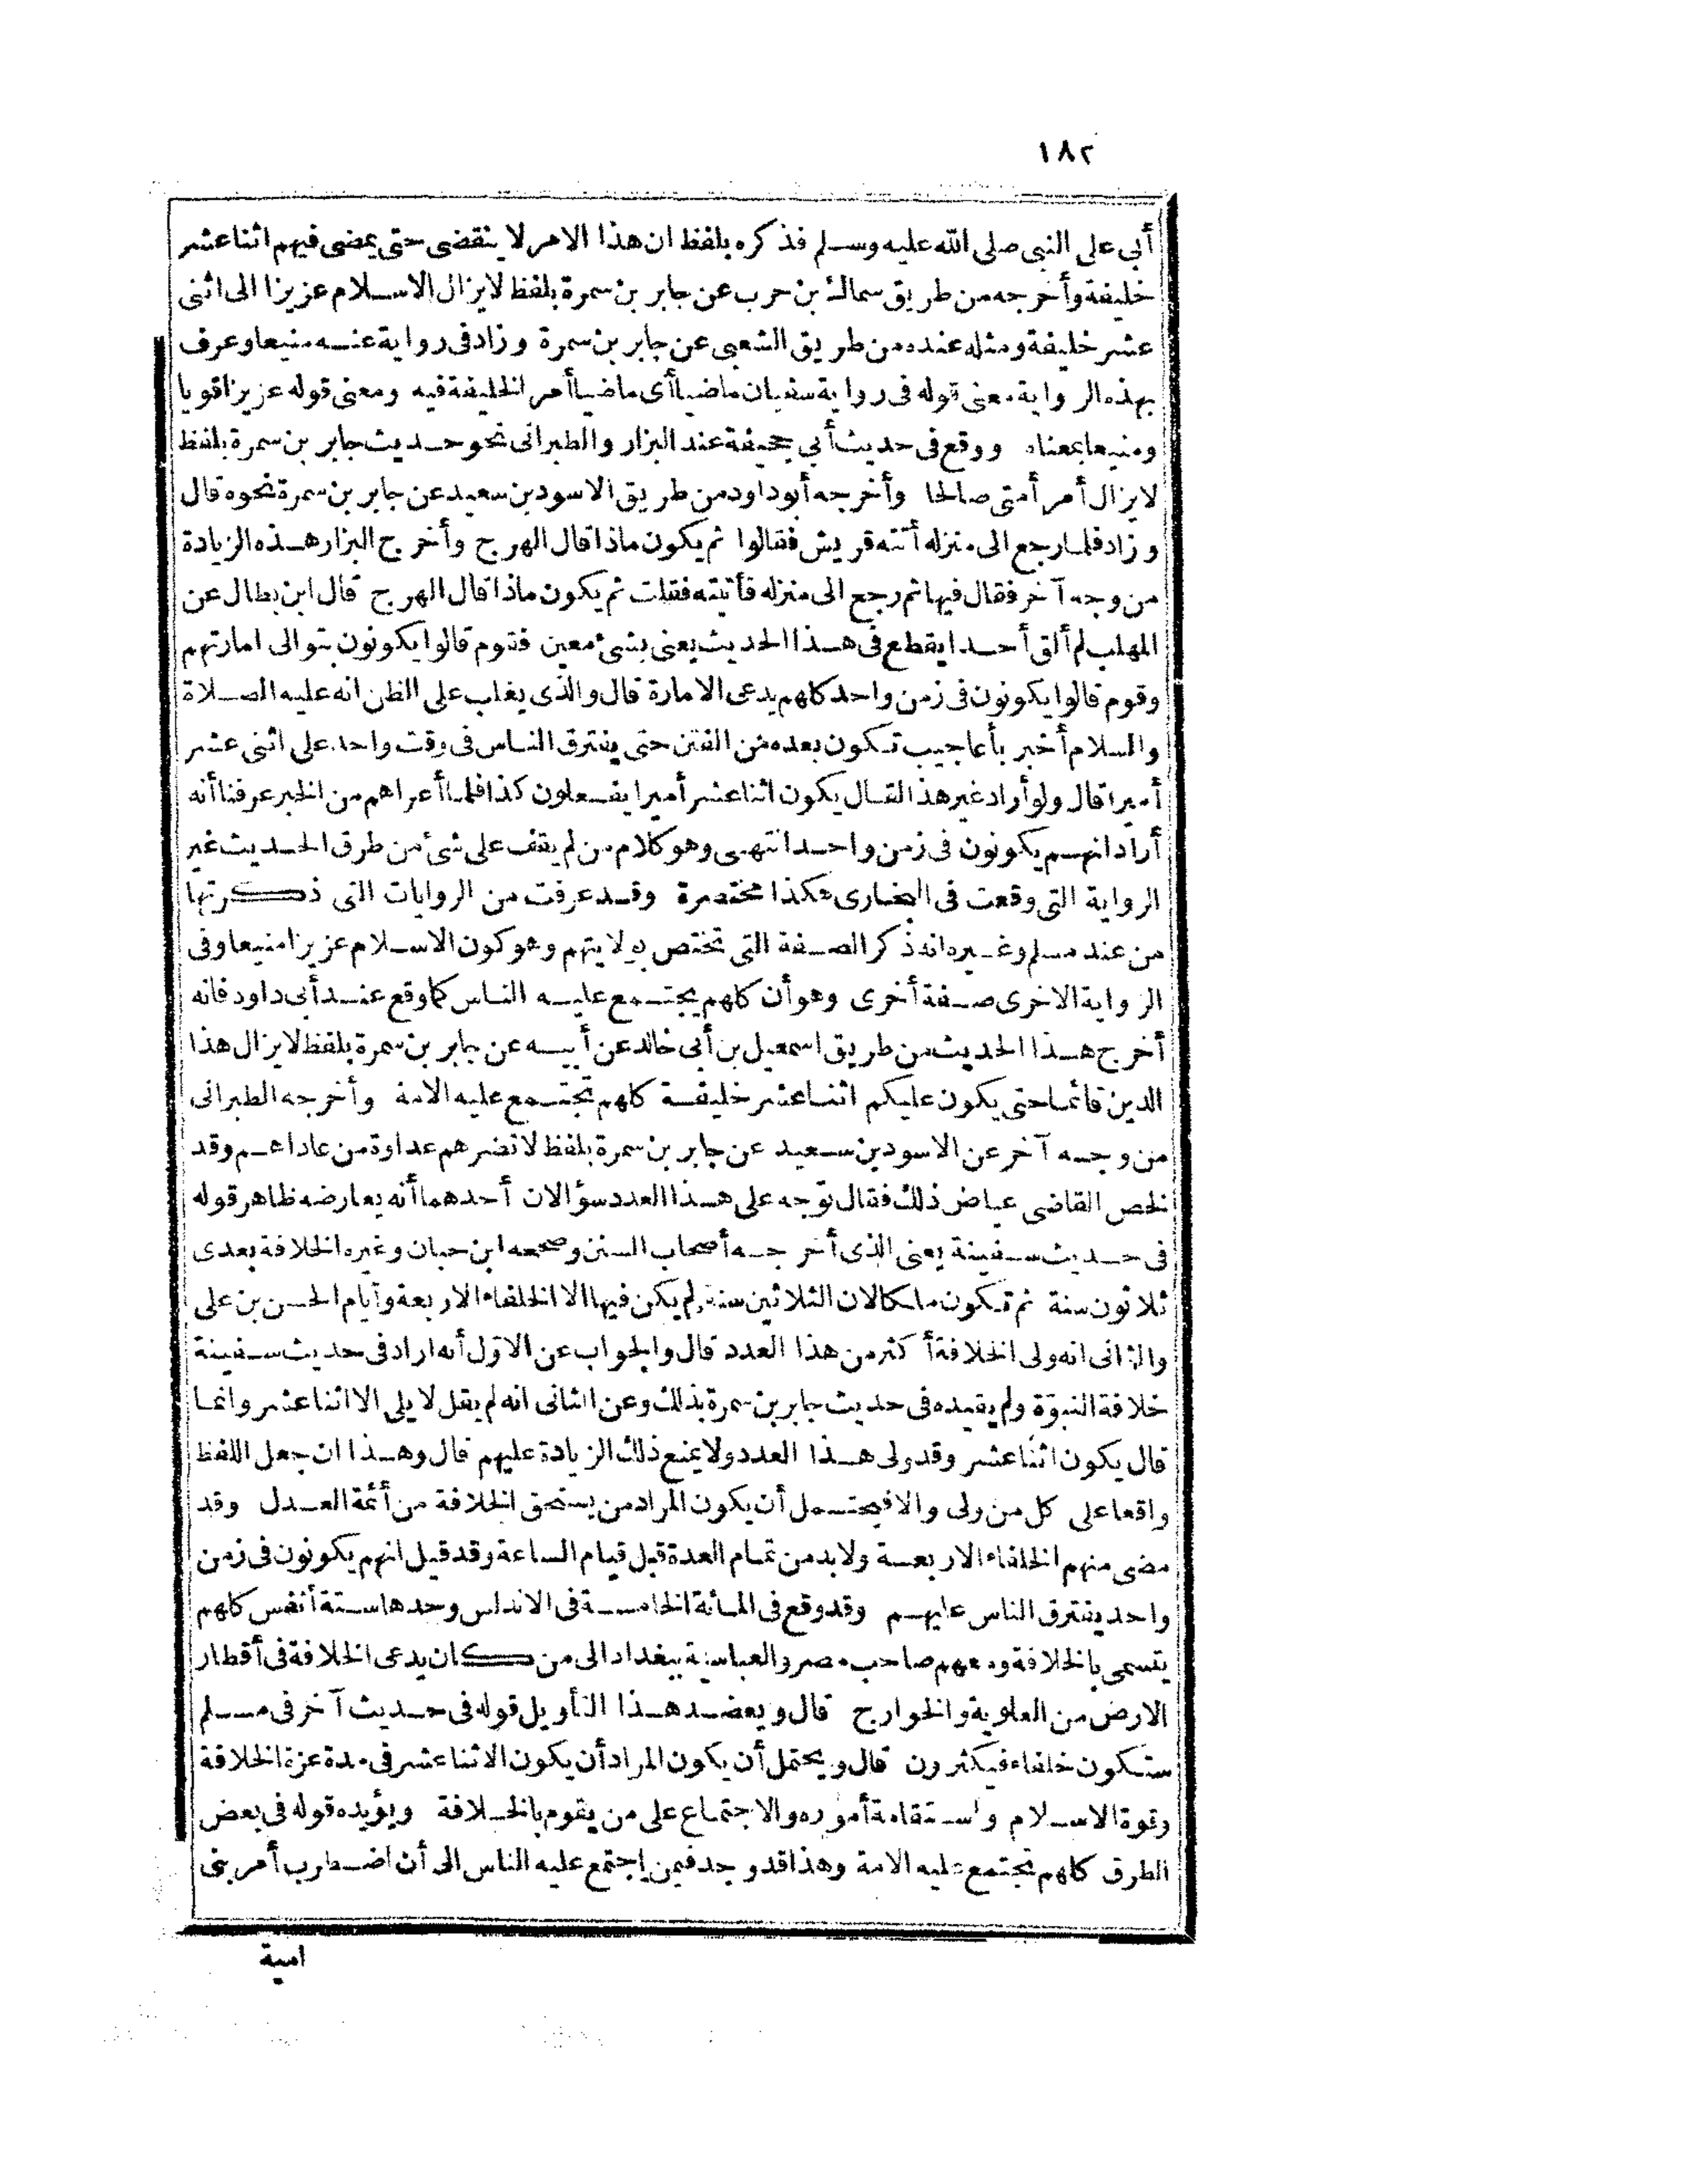 ١٨٢
أبى على النبى صلى الله عليه وسلم فذكره بلفظ ان هذا الامر لا ينقضى حتى يمضى فيهم اثنا عشر
خليفة وأخرجه من طريق سماك بن حرب عن جابر بن سمرة بلفظ لا يزال الاسلام عزيزا الى اثنى
عشر خليفة ومثله عنده من طريق الشعبى عن جابر بن سمرة وزاد فى رواية عنه منيعا وعرف
بهذه الرواية معنى قوله فى رواية سفيان ماضيا أى ماضيا أمر الخليفة فيه ومعنى قوله عزيزا قويا
ومنيعا بمعناه ووقع فى حديث أبى جحيفة عند البزار والطبرانى نحو حديث جابر بن سمرة بلفظ
لا يزال أمر أمتى صالحا وأخرجه أبو داود من طريق الاسود بن سعيد عن جابر بن سمرة نحوه قال
وزاد فلما رجع الى منزله أتته قريش فقالوا ثم يكون ماذا قال الهرج وأخرج البزار هذه الزيادة
من وجه آخر فقال فيها ثم رجع الى منزله فأتيته فقلت ثم يكون ماذا قال الهرج قال ابن بطال عن
المهلب لم ألق أحدا يقطع فى هذا الحديث يعنى بشئ معين فقوم قالوا يكونون بتوالى امارتهم
وقوم قالوا يكونون فى زمن واحد كلهم يدعى الامارة قال والذى يغلب على الظن انه عليه الصلاة
والسلام أخبر بأعاجيب تكون بعده من الفتن حتى يفترق الناس فى وقت واحد على اثنى عشر
أميرا قال ولو أراد غير هذا لقال يكون اثنا عشر أميرا يفعلون كذا فلما أعراهم من الخبر عرفنا أنه
أراد انهم يكونون فى زمن واحد انتهى وهو كلام من لم يقف على شئ من طرق الحديث غير
الرواية التى وقعت فى البخارى هكذا مختصرة وقد عرفت من الروايات التى ذكرتها
من عند مسلم وغيره انه ذكر الصفة التى تختص بولايتهم وهو كون الاسلام عزيزا منيعا وفى
الرواية الاخرى صفة أخرى وهو أن كلهم يجتمع عليه الناس كما وقع عند أبى داود فانه
أخرج هذا الحديث من طريق اسمعيل بن أبى خالد عن أبيه عن جابر بن سمرة بلفظ لا يزال هذا
الدين قائما حتى يكون عليكم اثنا عشر خليفة كلهم تجتمع عليه الامة وأخرجه الطبرانى
من وجه آخر عن الاسود بن سعيد عن جابر بن سمرة بلفظ لا تضرهم عداوة من عاداهم وقد
لخص القاضى عياض ذلك فقال توجه على هذا العدد سؤالان أحدهما أنه يعارضه ظاهر قوله
فى حديث سفينة يعنى الذى أخرجه أصحاب السنن وصححه ابن حبان وغيره الخلافة بعدى
ثلاثون سنة ثم تكون ملكا لان الثلاثين سنة لم يكن فيها الا الخلفاء الاربعة وأيام الحسن بن على
والثانى انه ولى الخلافة أكثر من هذا العدد قال والجواب عن الاول أنه اراد فى حديث سفينة
خلافة النبوة ولم يقيده فى حديث جابر بن سمرة بذلك وعن الثانى انه لم يقل لا يلى الا اثنا عشر وانما
قال يكون اثنا عشر وقد ولى هذا العدد ولا يمنع ذلك الزيادة عليهم قال وهذا ان جعل اللفظ
واقعا على كل من ولى والا فيحتمل أن يكون المراد من يستحق الخلافة من أئمة العدل وقد
مضى منهم الخلفاء الاربعة ولا بد من تمام العدة قبل قيام الساعة وقد قيل انهم يكونون فى زمن
واحد يفترق الناس عليهم وقد وقع فى المائة الخامسة فى الاندلس وحدها ستة أنفس كلهم
يتسمى بالخلافة ومعهم صاحب مصر والعباسية ببغداد الى من كان يدعى الخلافة فى أقطار
الارض من العلوية والخوارج قال ويعضد هذا التأويل قوله فى حديث آخر فى مسلم
ستكون خلفاء فيكثرون قال ويحتمل أن يكون المراد أن يكون الاثنا عشر فى مدة عزة الخلافة
وقوة الاسلام واستقامة أموره والاجتماع على من يقوم بالخلافة ويؤيده قوله فى بعض
الطرق كلهم تجتمع عليه الامة وهذا قد وجد فيمن اجتمع عليه الناس الى أن اضطرب أمر بنى
امية